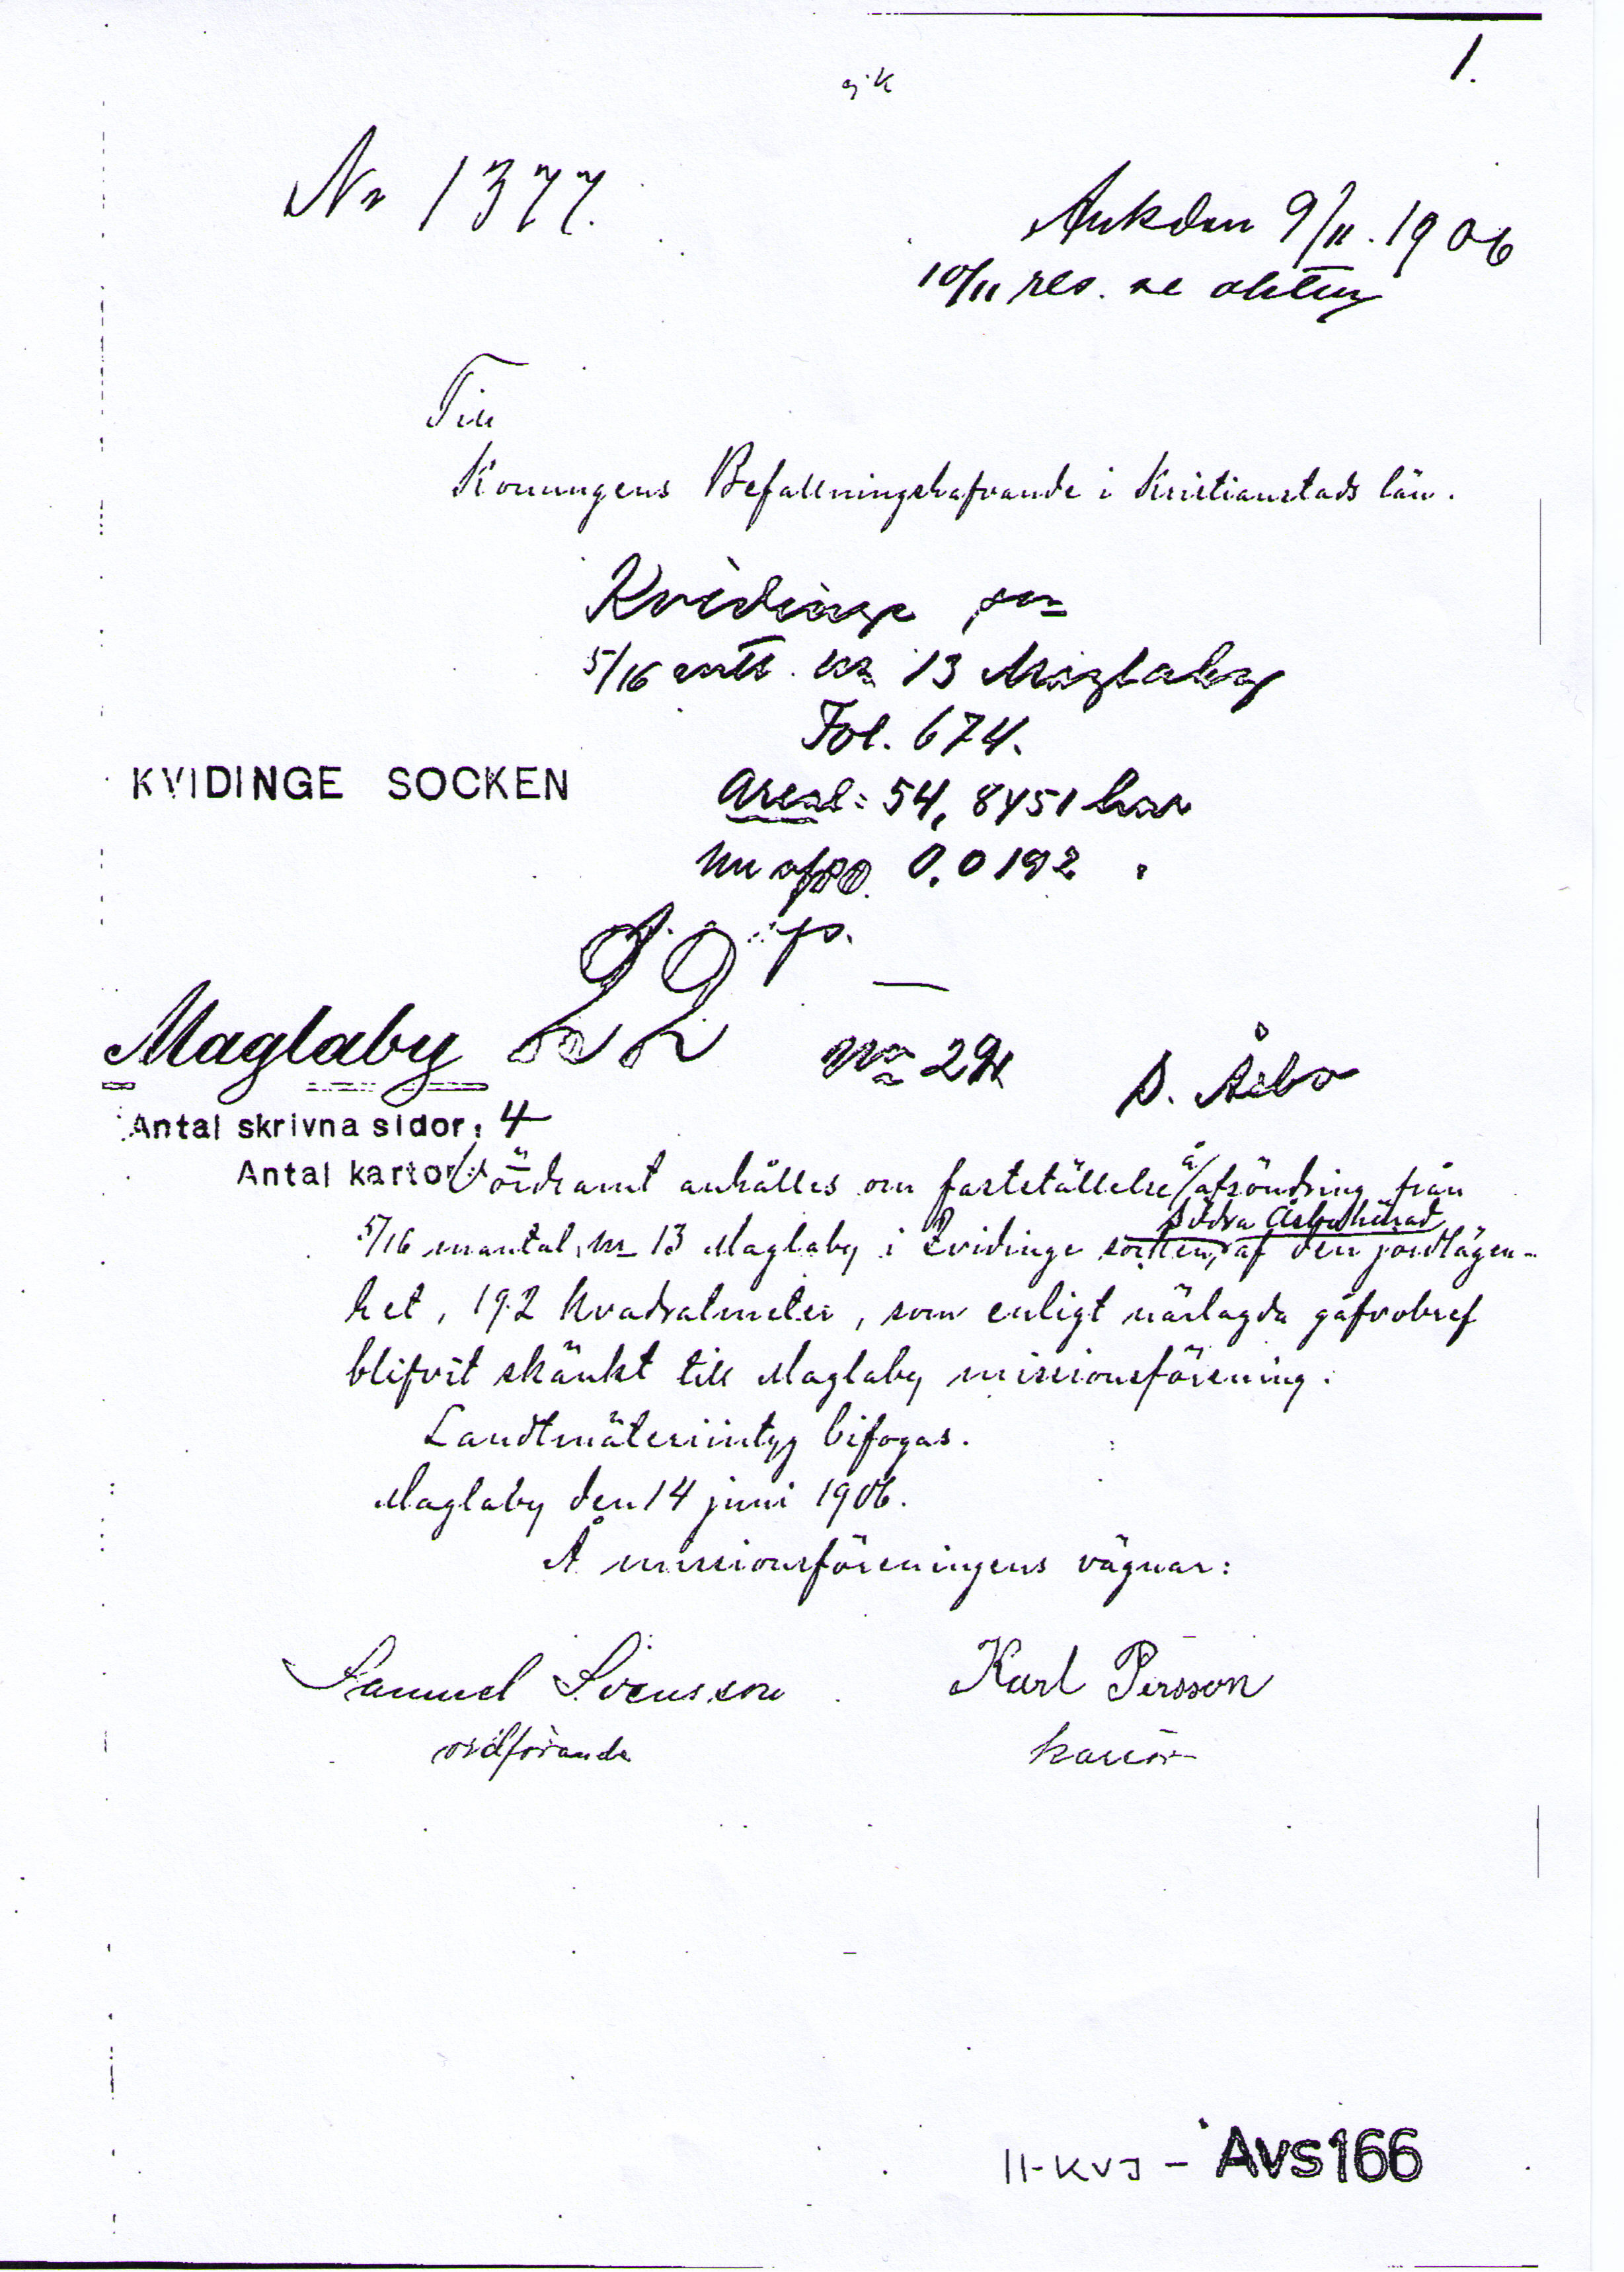 1.
ejk
Nr 1377.
Ank den 9/11. 1906
10/11 res. se akten
Till
Konungens Befallningshafvande i Kristianstads län.
Kvidinge sn
5/16 mtl. nr 13 Maglaby
Fol. 674.
KVIDINGE SOCKEN
Areal: 54,8451 har
nu afsö. 0,0192 "
Maglaby 22
No 294
S. Åsbo
Antal skrivna sidor: 4
Antal kartor:
Vördsamt anhålles om fastställelse å afsöndring från
5/16 mantal, nr 13 Maglaby i Qvidinge socken, Södra Åsbo härad af den jordlägen-
het, 192 kvadratmeter, som enligt närlagda gåfvobref
blifvit skänkt till Maglaby missionsförening.
Landtmäteriintyg bifogas.
Maglaby den 14 juni 1906.
Å missionsföreningens vägnar:
Samuel Svensson Karl Persson
ordförande kassör
11-KVJ - Avs166